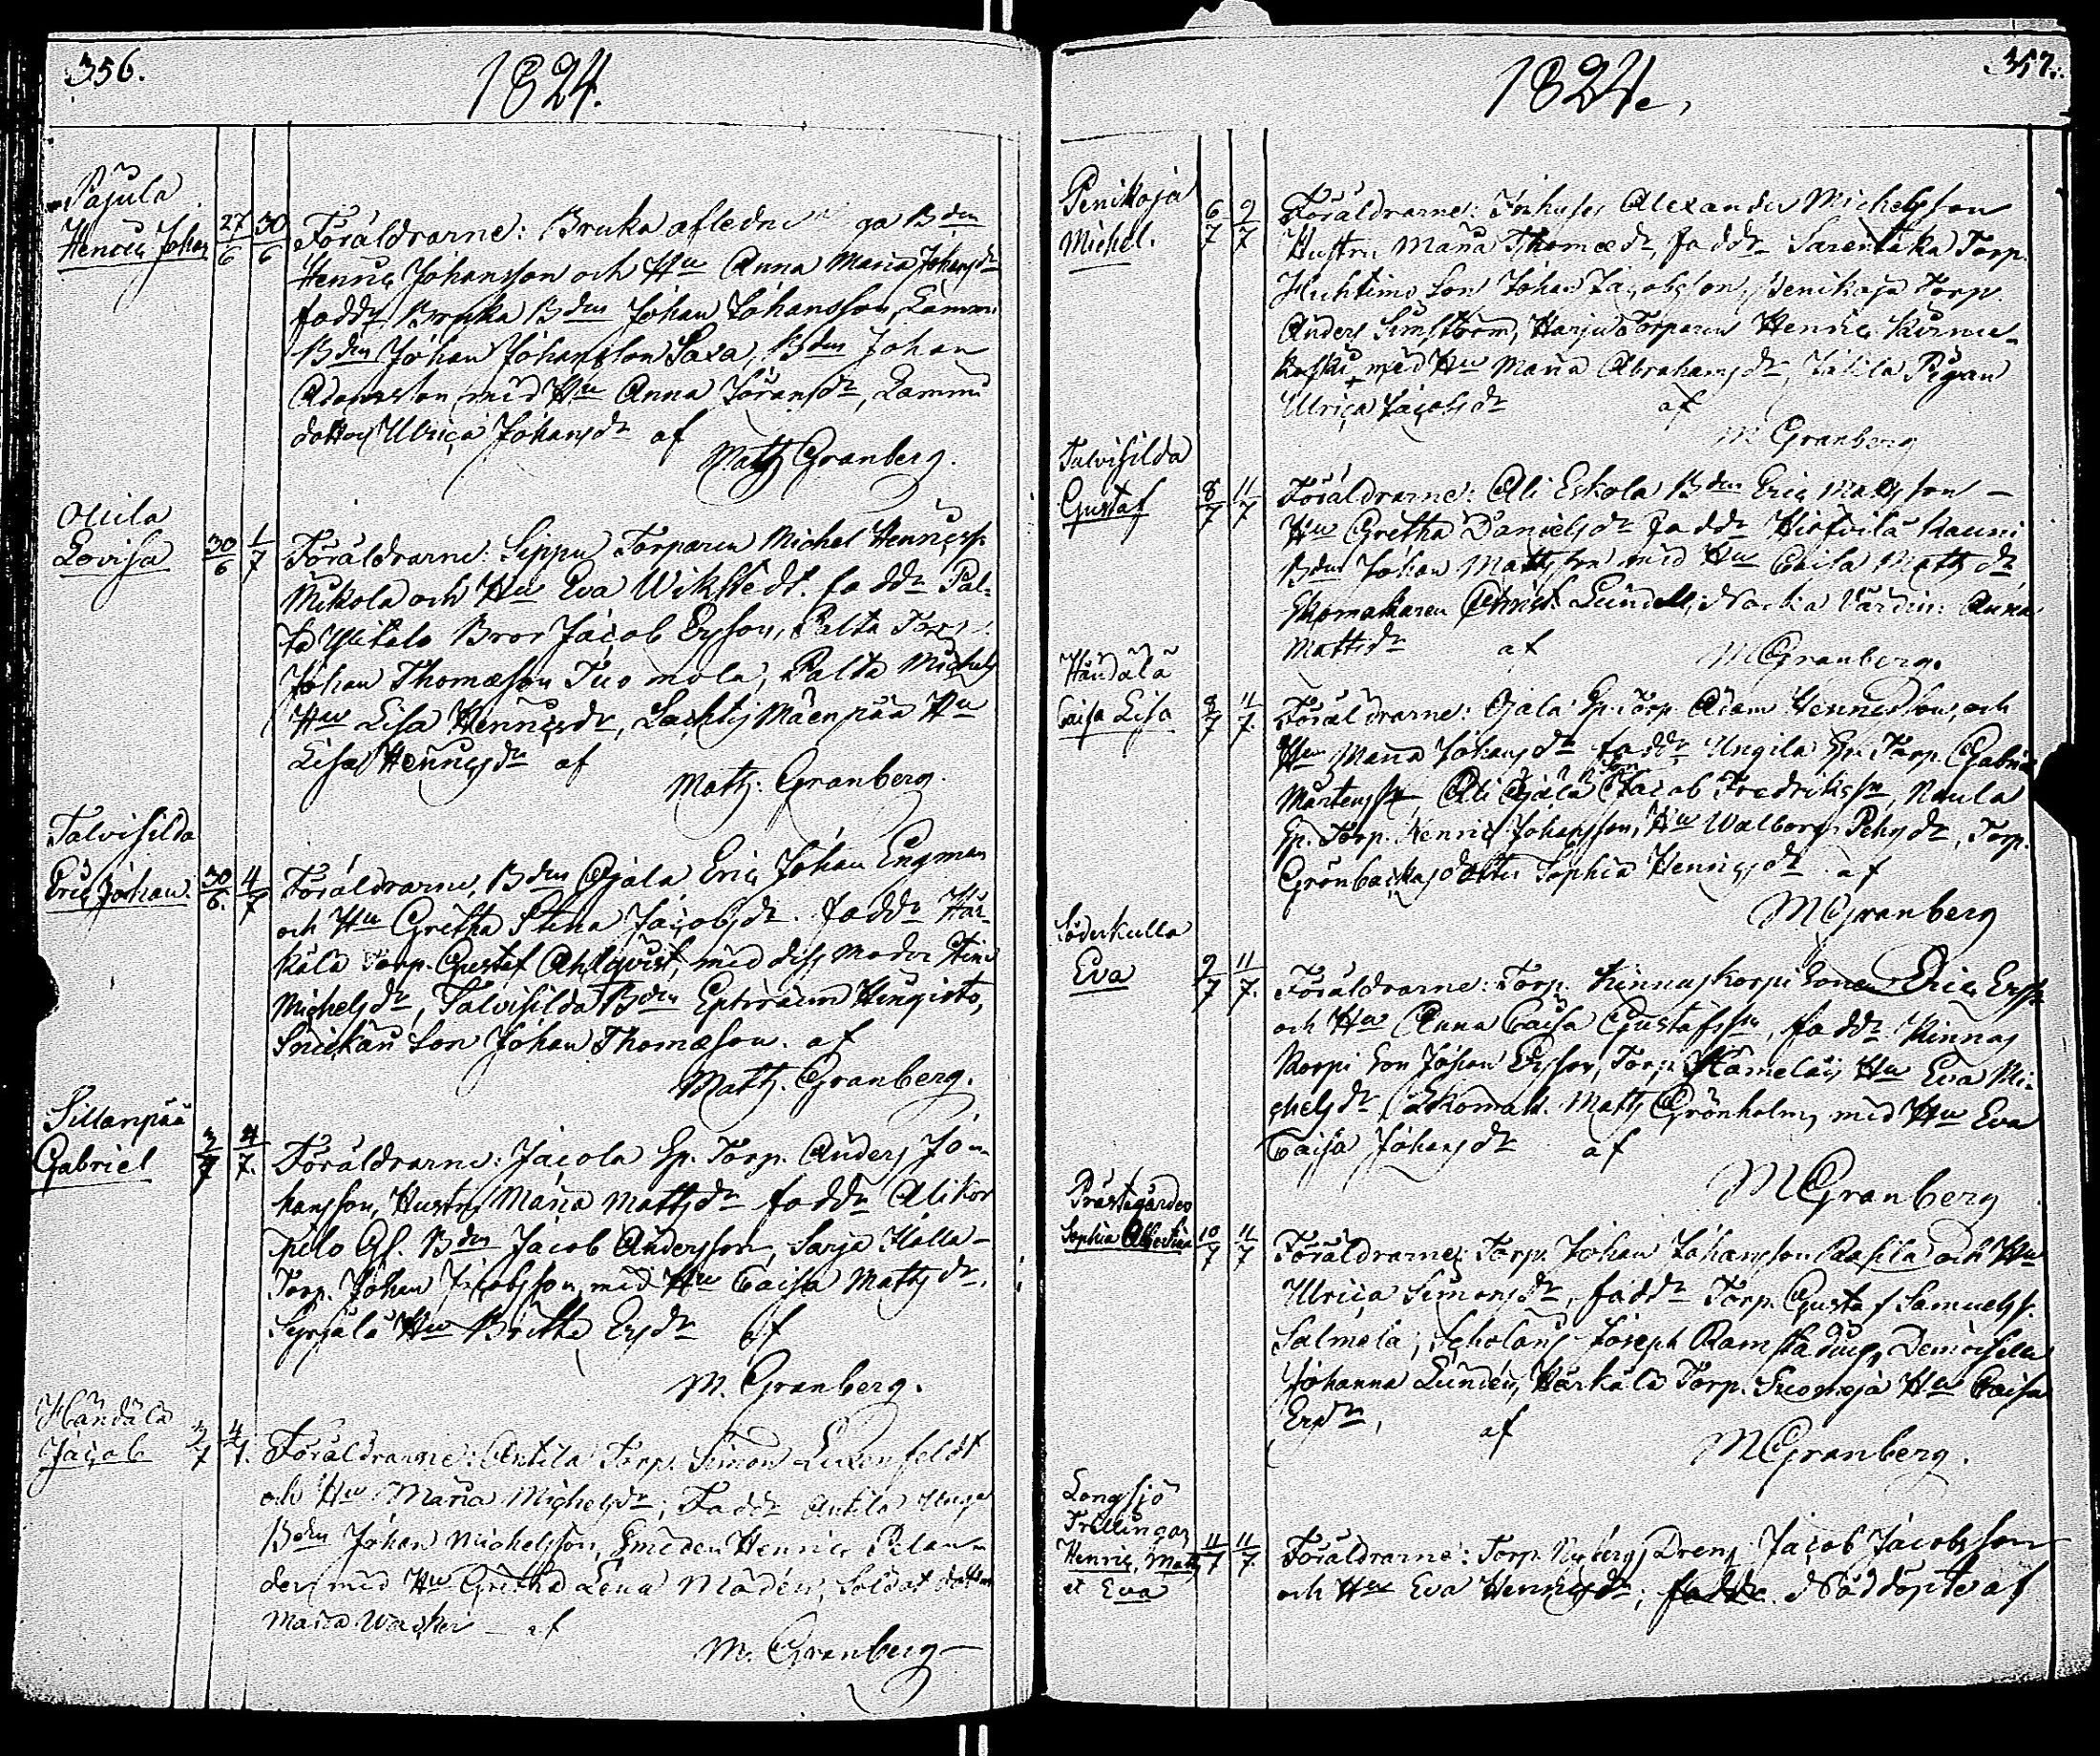 356.
1824.
Pajula
Henric Johan 27/6 30/6 Föräldrarne: Bruka afledne ga Bden
Henric Johansson och Hu Anna Maria Johansdr
faddr Bruka Bden Johan Johansson, Lammi
Bden Johan Johansson Saxa, Bden Johan
Adamsson med Hu Anna Göransdr, Lammi
dotter Ulrica Johansdr af
Math Granberg.
Ollila
Lovisa 30/6 1/7 Föräldrarne: Sippu Torparen Michel Henricss.
Mikola och Hu Eva Wikstedt. faddr Pal-
ta Ylitalo Bror Jacob Ersson, Palta Torp.
Johan Thomæson Tuomola, Palta Michels
Hu Lisa Henricsdr, Lachtis Mäenpää Hu
Lisa Henricsdr af
Math. Granberg.
Talvisilda
Eric Johan. 30/6. 4/7 Föräldrarne, Bden Ojala Eric Johan Engman
och Hu Gretha Stina Jacobsdr. faddr Här-
kälä Torp. Gustaf Ahlqvist, med dess moder Stina
Michelsdr, Talvisilda Bden Ephraim Hingisto,
Snickari Son Johan Thomæson. af
Math. Granberg.
Sillanpää
Gabriel 3/7 4/7. Föräldrarne: Jacola Sp. Torp. Anders Jo-
hansson, Hustru Maria Mattsdr faddr Alikor
pilo Af. Bden Jacob Andersson, Sarja Halla-
Torp. Johan Jacobsson, med Hu Caisa Mattsdr.
Syrjälä Hu Britha Ersdr af
M. Granberg.
Händälä
Jacob 3/7 4/7. Föräldrarne: Antila Torp. Simon Luxenfeldt
och Hu Maria Michelsdr; Faddr Antila Unga
Bden Johan Michelsson, Smeden Henric Pelan-
der med Hu Gretha Lena Modén, Soldat dottren
Maria Wacker af
M. Granberg
357.
1824.
Penikoja
Michel. 6/7 9/7 Föräldrarne: Inhyses Alexander Michelsson
Hustru Maria Thomædr, faddr Sarentaka Torp.
Huhtimo Son Johan Jacobsson, Penikoja Torp.
Anders Simström, Harju Torparen Henric Kirmu-
koski med Hu Maria Abrahamsdr, Jälilä Pigan
Ulrica Jacobsdr af
M Granberg
Talvisilda
Gustaf 8/7 11/7 Föräldrarne: Ali Eskola Bden Eric Mattsson –
Hu Gretha Danielsdr faddr Hietvilä Kauni
Bden Johan Mattsson med Hu Caisa Mattsdr,
Skomakaren Christ. Lundell, Nocka Värdin: Anna
Mattsdr af
MGranberg.
Händälä
Caisa Lisa 8/7 11/7. Föräldrarne: Ojala Sp. Torp. Adam Henricsson, och
Hu Maria Johansdr faddr Ungila Sp. Torp. Gabriel
Mårtensson, Ali Ojala Son Jacob Fredriksson, Naula
Sp. Torp. Henric Johansson, Hu Walborg Pehrsdr, Torp.
Grönbackas dotter Sophia Henricsdr af
MGranberg
Söderkulla
Eva 9/7 11/7. Föräldrarne: Torp. Kinnaskorpi Sonen Eric Ersson
och Hu Anna Caisa Gustafssn, faddr. Kinnas
Korpi Son Johan Ersson, Torp. Hämeläis Hu Eva Mi-
chelsdr, Skomak. Matts Grönholm, med Hu Eva
Caisa Johansdr af
MGranberg
Prästgården
Sophia Albertina 10/7 11/7 Föräldrarne: Torp. Johan Johansson Rasila och Hu
Ulrica Simonsdr, faddr Torp. Gustaf Samuelss.
Salmela, Scholaris Joseph Ramstadius, Demoiselle
Johanna Lundén, Härkälä Torp. Suomoja Hu Caisa
Ersdr, af
MGranberg.
Longsjö
Trillingar
Henric, Matts 11/7 11/7. Föräldrarne: Torp. Nybergs Dreng Jacob Jacobsson
et Eva och Hu Eva Henricsdr; faddr. Nöddöpte af